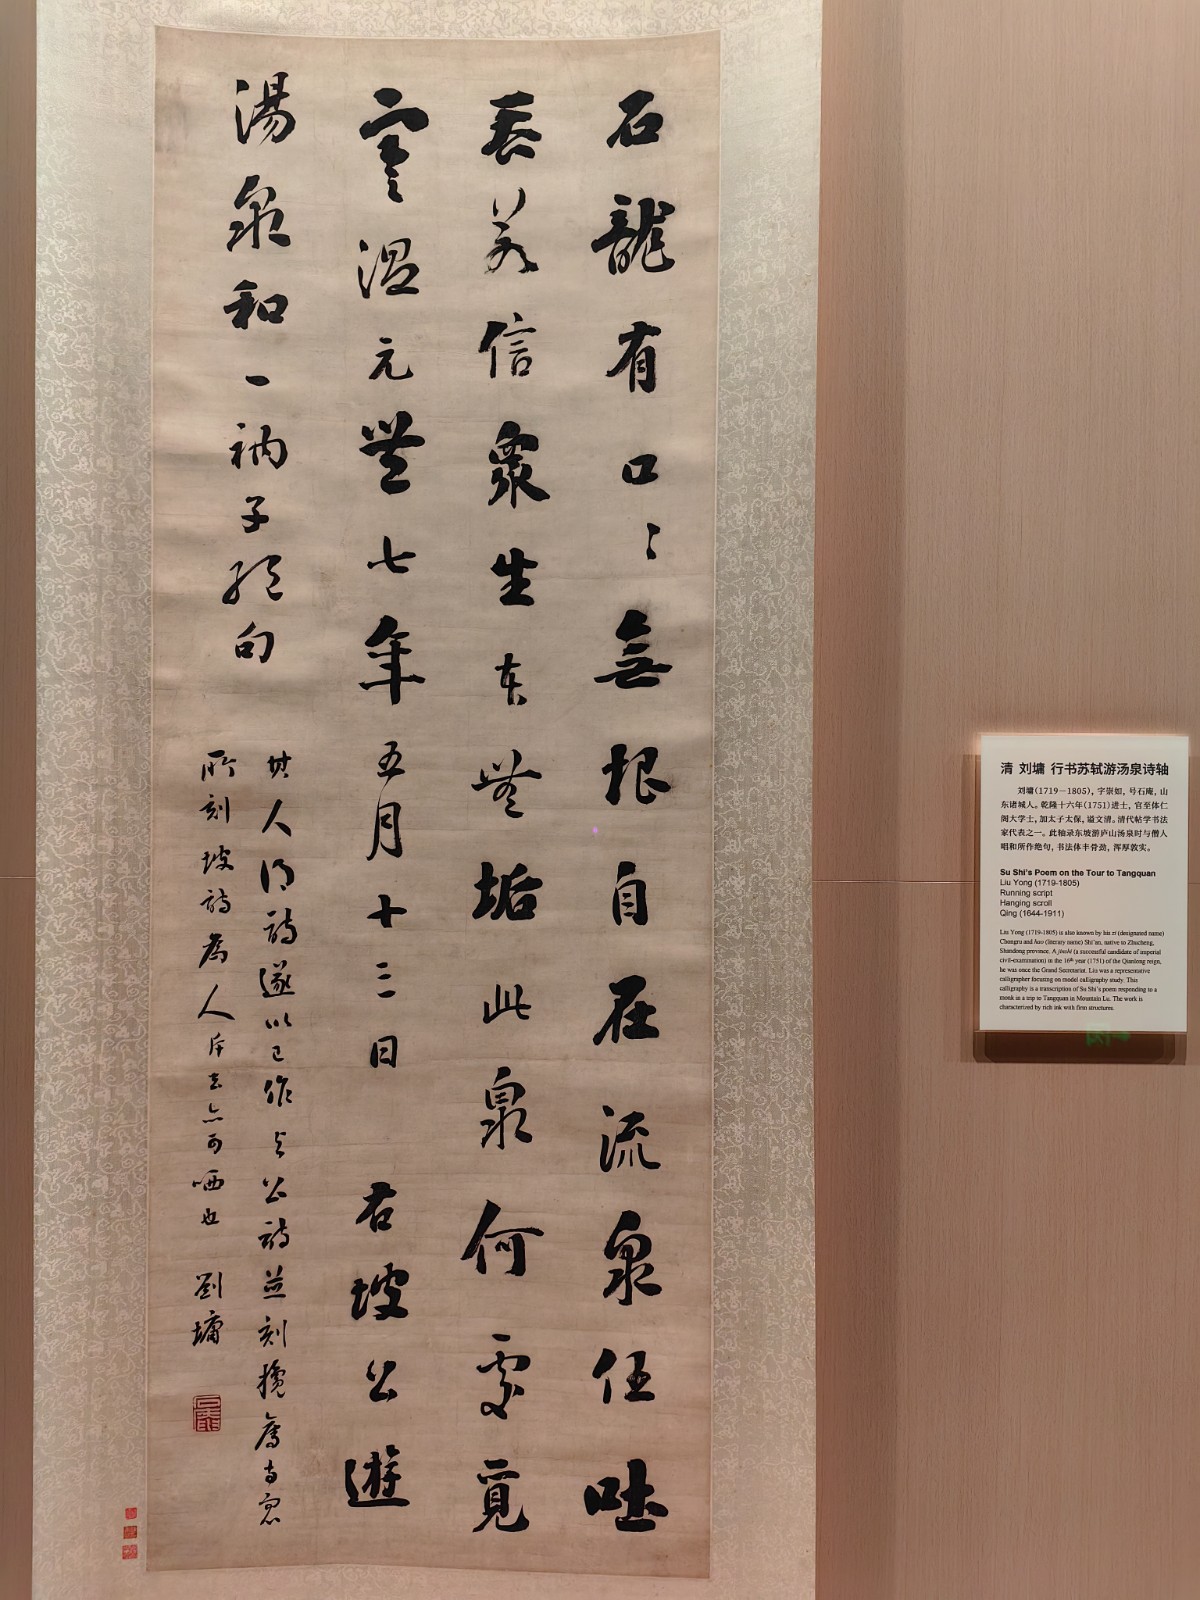 石龍有口〻無根自在流泉任吐
吞若信眾生本無垢此泉何處覓
寒温元豐七年五月十三日 右坡公遊
湯泉和一衲子絕句
其人得詩遂以己作与公詩並刻
所刻坡詩為人斥去亦可哂也 劉墉
清 刘墉 行书苏轼游汤泉诗轴
刘墉(1719—1805),字崇如,号石庵,山
东诸城人。乾隆十六年(1751)进士,官至体仁
阁大学士,加太子太保,谥文清。清代帖学书法
家代表之一。此轴录东坡游庐山汤泉时与僧人
唱和所作绝句,书法体丰骨劲,浑厚敦实。
Su Shi's Poem on the Tour to Tangquan
Liu Yong (1719-1805)
Running script
Hanging scroll
Qing (1644-1911)
Liu Yong (1719-1805) is also known by his zi (designated name)
Chongru and hao (literary name) Shi'an, native to Zhucheng,
Shandong province. A jinshi (a successful candidate of imperial
civil-examination) in the 16th year (1751) of the Qianlong reign,
he was once the Grand Secretariat. Liu was a representative
calligrapher focusing on model calligraphy study. This
calligraphy is a transcription of Su Shi's poem responding to a
monk in a trip to Tangquan in Mountain Lu. The work is
characterized by rich ink with firm structures.